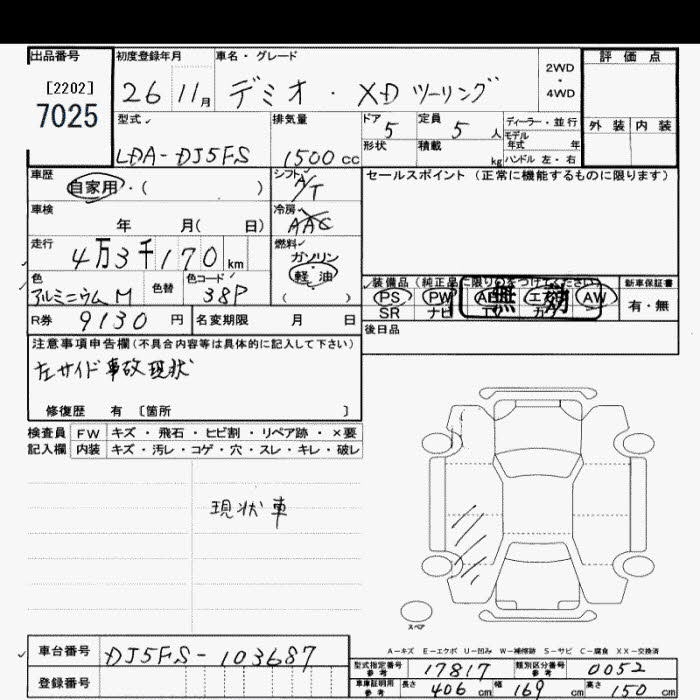 出品番号 初度登録年月 車名・グレード 評価点
[2202] 2WD
7025 26 11月 デミオ・XDツーリング ・ 4WD
型式 排気量 ドア 定員 ディーラー・並行 外装 内装
LDA-DJ5FS 1500cc 5 5人 モデル年式 年
形状 積載 kg ハンドル 左・右
車歴 シフト セールスポイント(正常に機能するものに限ります)
自家用・( ) A/T
車検 冷房
年 月( 日) AAC
走行 燃料
4万3千170km ガソリン
軽油
色 色替 色コード ( ) 装備品(純正品に限り○をつけてください) 新車保証書
アルミニウムM 38P PS PW AB エアB AW 有・無
無効
SR ナビ TV カワ
R券 9130円 名変期限 月 日 後日品
注意事項申告欄(不具合内容等は具体的に記入して下さい)
左サイド事故現状
修復歴 有 [箇所 ]
検査員 FW キズ・飛石・ヒビ割・リペア跡・×要
記入欄 内装 キズ・汚レ・コゲ・穴・スレ・キレ・破レ
現状車
スペア
A-キズ E-エクボ U-凹み W-補修跡 S-サビ C-腐食 XX-交換済
車台番号 DJ5FS-103687
型式指定番号 参考 17817 類別区分番号 参考 0052
登録番号
車庫証明用 参考 長さ 406cm 幅 169cm 高さ 150cm